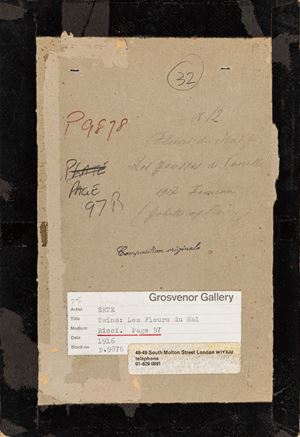 32
P9878
N. 12
Fleurs du Mal
PLATE
PAGE
97R
Les
1912
Composition originale
Grosvenor Gallery
75
Artist ERTE
Title Twins: Les Fleurs du Mal
Medium Ricci. Page 97
Date 1916
Stock no p.9876
48-49 South Molton Street London W1Y 1HU
telephone
01-629 0891